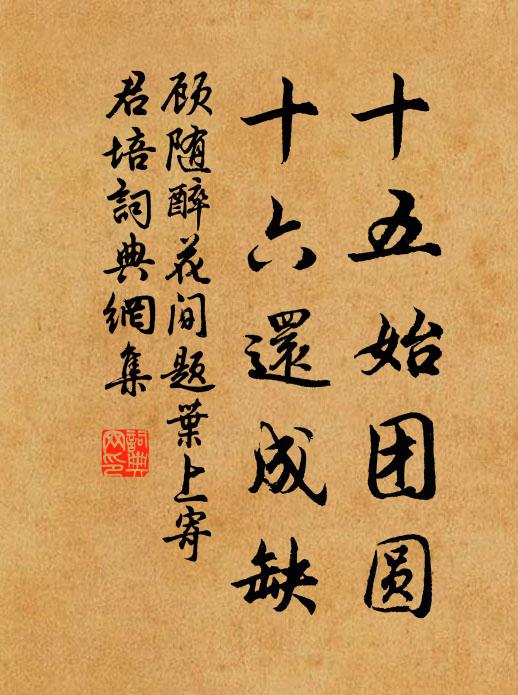 十五始团圆
十六還成缺
顾随醉花间题葉上寄
君培詞典網集
詞典
网印